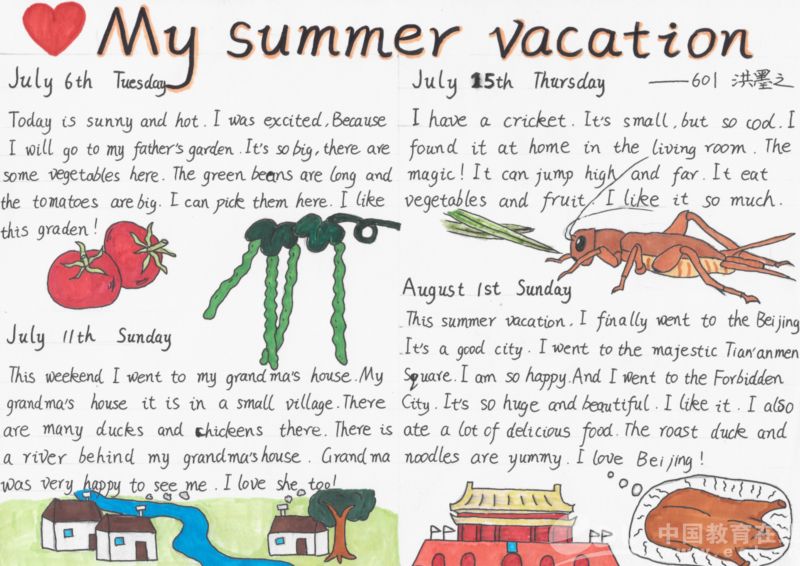 My summer vacation
July 6th Tuesday
Today is sunny and hot. I was excited, Because
I will go to my father's garden. It's so big, there are
some vegetables here. The green beans are long and
the tomatoes are big. I can pick them here. I like
this graden!
July 11th Sunday
This weekend I went to my grandma's house. My
grandma's house it is in a small village. There
are many ducks and chickeens there. There is
a river behind my grandma's house. Grandma
was very happy to see me. I love she too!
July 15th Thursday ——601 洪墨之
I have a cricket. It's small, but so cool. I
found it at home in the living room. The
magic! It can jump high and far. It eat
vegetables and fruit. I like it so much.
August 1st Sunday
This summer vacation, I finally went to the Beijing
It's a good city. I went to the majestic Tian'anmen
Square. I am so happy. And I went to the Forbidden
City. It's so huge and beautiful. I like it. I also
ate a lot of delicious food. The roast duck and
noodles are yummy. I love Beijing!
中国教育在